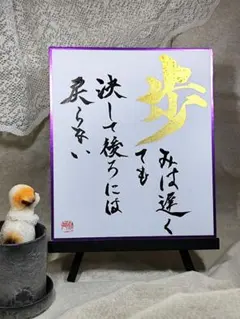 歩みは遅く
ても
決して後ろには
戻らない